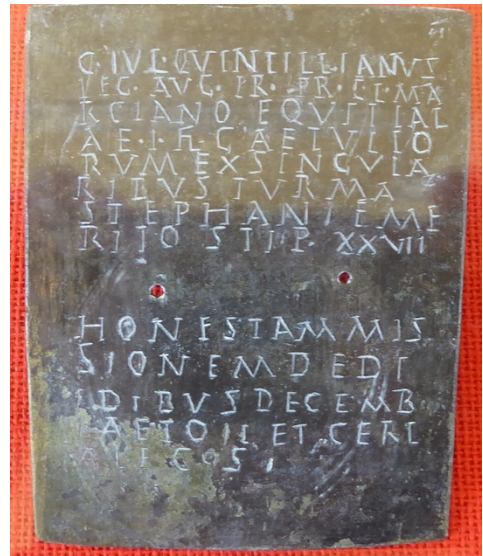 C·IVL·QVINTILLIANVS
LEG·AVG·PR·PR·CL·MA
RCIANO EQVITI AL
AE·I·H·GAETVLIO
RVM EX SINGVLA
RIBVS TVRMA
STEPHANI EME
RITO STIP· XXVII
HONESTAM MIS
SIONEM DEDI
IDIBVS DECEMB
LAETO II ET CERI
ALE COS